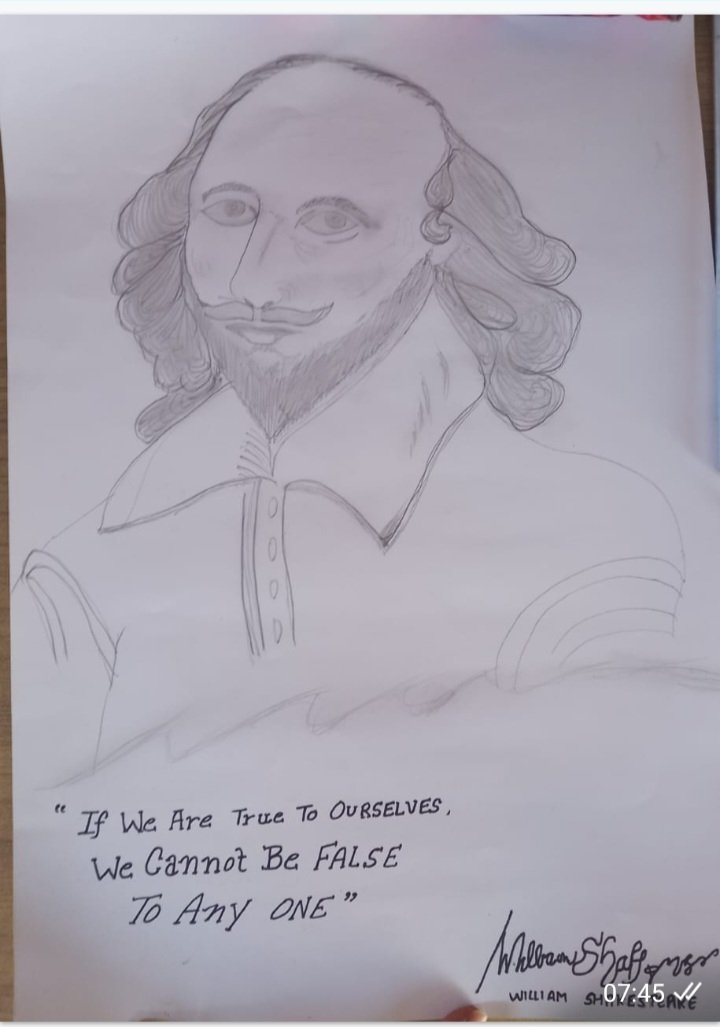 " If We Are True To OURSELVES,
We Cannot Be FALSE
To Any ONE"
William
WILLIAM
07:45